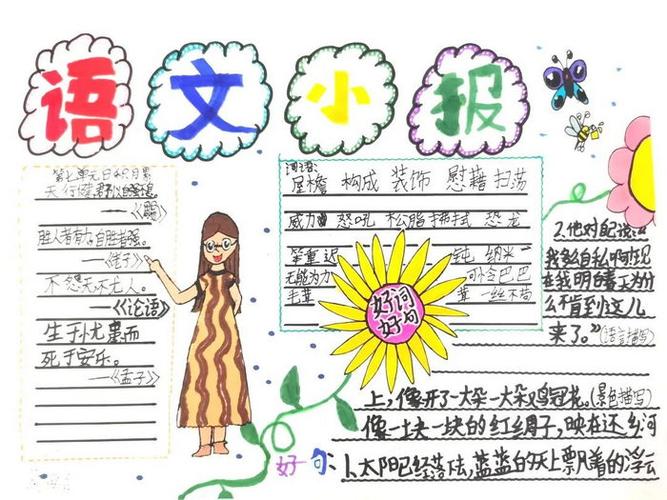 语文小报
第七单元日积月累
天行健,君子以自强不息
——《周易》
胜人者有力,自胜者强。
——《老子》
不怨天不尤人。
——《论语》
生于忧患而
死于安乐。
——《孟子》
词语:
屋檐 构成 装饰 慰藉 扫荡
威力 怒吼 松脂 拂拭 恐龙
笨重 迟 钝 纳米
无能为力 可怜巴巴
毛茸 茸 一丝不苟
好词
好句
好句:1、太阳已经落法,蓝蓝的天上飘着的浮云
像一块一块的红绸子,映在还乡河
上,像开了一大朵一大朵鸡冠花。(景色描写)
2.他对自己说:“
我多自私啊现
在我明白春天为什
么不肯到这儿
来了。”(语言描写)